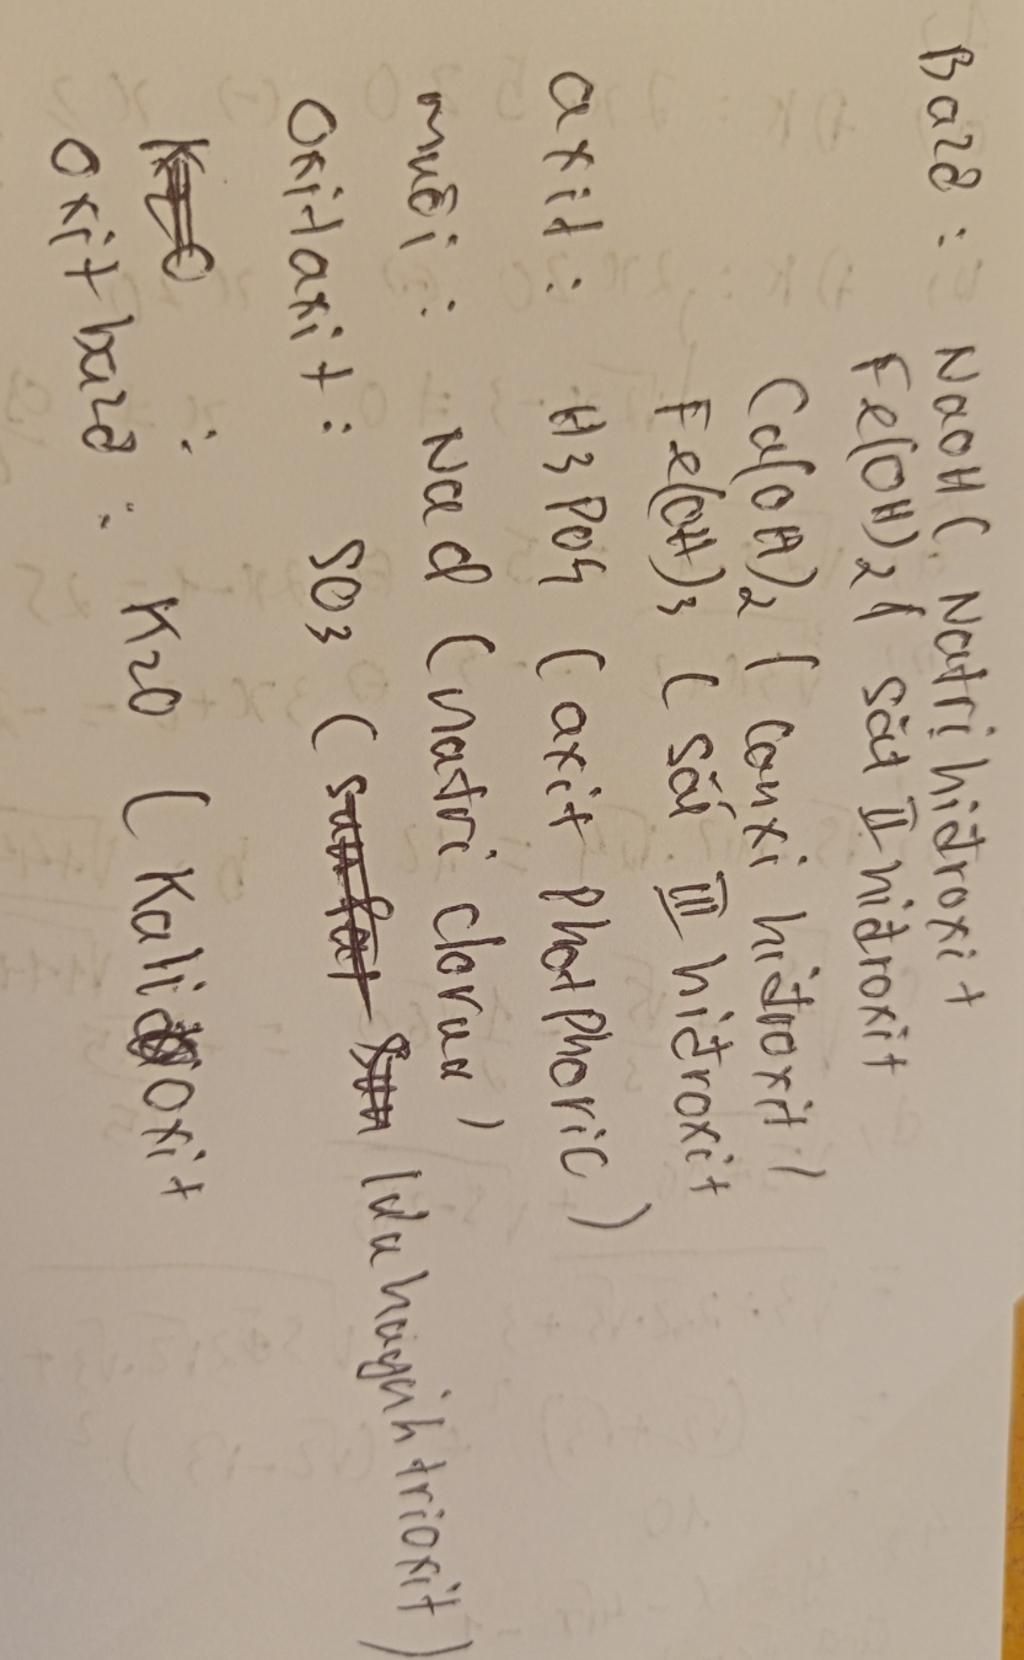 Bazơ : NaOH ( Natri hiđroxit
Fe(OH)2 ( sắt II hiđroxit
Ca(OH)2 ( Canxi hiđroxit )
Fe(OH)3 ( sắt III hiđroxit
axit : H3PO4 ( axit photphoric )
muối : Nacl ( natri clorua )
Oxit axit : SO3 ( lưu huỳnh trioxit )
K2O :
Oxit bazơ : K2O ( Kali oxit